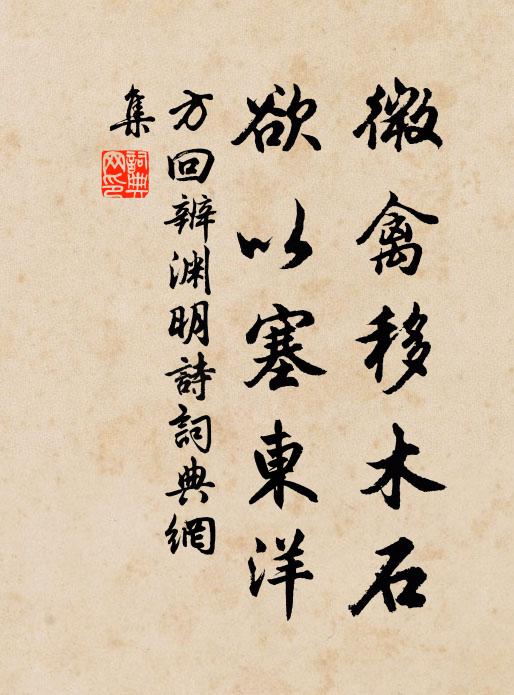 微禽移木石
欲以塞東洋
方回辨渊明詩詞典網
集
詞典
网印